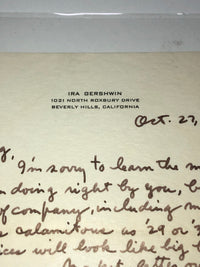 IRA GERSHWIN
1021 NORTH ROXBURY DRIVE
BEVERLY HILLS, CALIFORNIA
Oct. 27,
I'm sorry to learn the m
doing right by you, b
of company, including m
s calamitous as '29 or '3
ices will look like big t